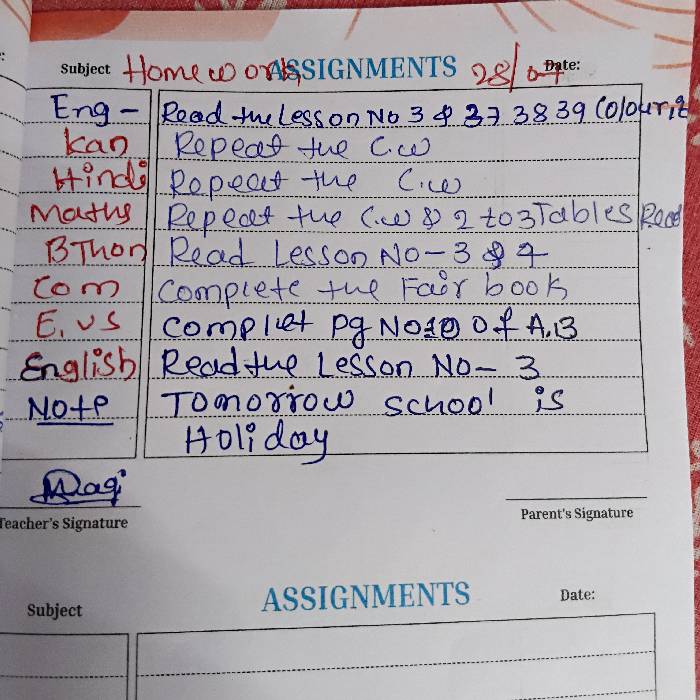 Subject Homework ASSIGNMENTS 28/07 Date:
Eng - Read the Lesson No 3 & 37 38 39 Colour it
Kan Repeat the C.w
Hindi Repeat the C.w
Maths Repeat the C.w & 2 to 3 Tables Read
B Thon Read Lesson No - 3 & 4
Com Complete the Fair book
E.VS Complet Pg No 10 of A.B
English Read the Lesson No - 3
Note Tomorrow school is
Holiday
Teacher's Signature Parent's Signature
Subject ASSIGNMENTS Date: